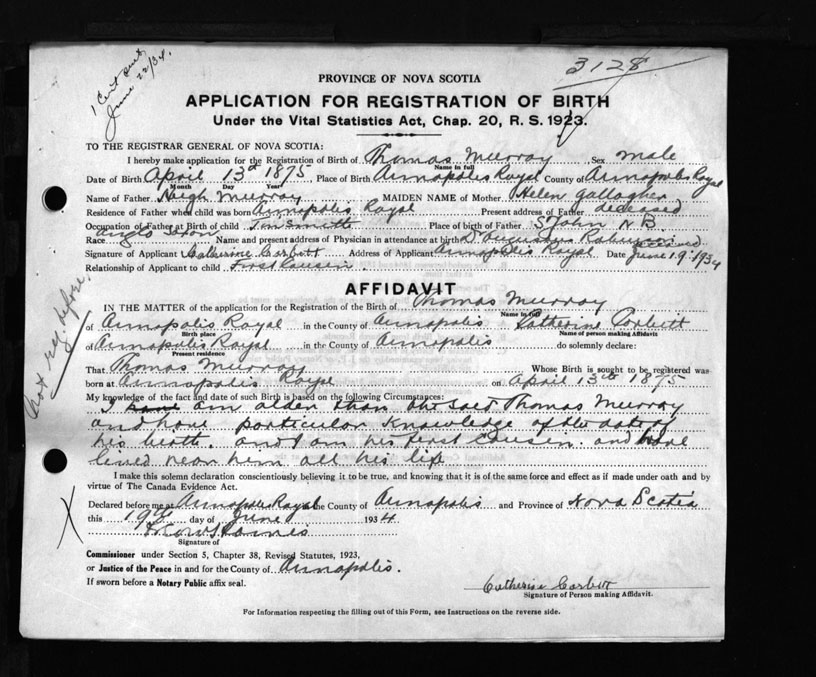 1 Cent
June 22/34.
3128
PROVINCE OF NOVA SCOTIA
APPLICATION FOR REGISTRATION OF BIRTH
Under the Vital Statistics Act, Chap. 20, R. S. 1923.
TO THE REGISTRAR GENERAL OF NOVA SCOTIA:
I hereby make application for the Registration of Birth of Thomas Murray Sex male
Name in full
Date of Birth April 13th 1875 Place of Birth Annapolis Royal County of Annapolis Royal
Month Day Year
Name of Father Hugh Murray MAIDEN NAME of Mother Helen Gallagher
Residence of Father when child was born Annapolis Royal Present address of Father deceased
Occupation of Father at Birth of child Tin Smith Place of birth of Father St John N B.
Race Anglo Saxon Name and present address of Physician in attendance at birth Dr Augustus
Signature of Applicant Catherine Corbett Address of Applicant Annapolis Royal Date June 19. 1934
Relationship of Applicant to child First Cousin
AFFIDAVIT
IN THE MATTER of the application for the Registration of the Birth of Thomas Murray
Name in full
of Annapolis Royal in the County of Annapolis Catherine
Birth place Name of person making Affidavit
of Annapolis Royal in the County of Annapolis do solemnly declare:
Present residence
That Thomas Murray Whose Birth is sought to be registered was
born at Annapolis Royal on April 13th 1875
My knowledge of the fact and date of such Birth is based on the following Circumstances:
I have am older than the said Thomas Murray
and have particular Knowledge of the date of
his birth. and I am his first Cousin. and have
lived near him all his life
I make this solemn declaration conscientiously believing it to be true, and knowing that it is of the same force and effect as if made under oath and by
virtue of The Canada Evidence Act.
Declared before me at Annapolis Royal the County of Annapolis and Province of Nova Scotia
this 19th day of June 1934
Signature of
Commissioner under Section 5, Chapter 38, Revised Statutes, 1923,
or Justice of the Peace in and for the County of Annapolis.
If sworn before a Notary Public affix seal.
Catherine Corbett
Signature of Person making Affidavit.
For Information respecting the filling out of this Form, see Instructions on the reverse side.
Not reg. before
X